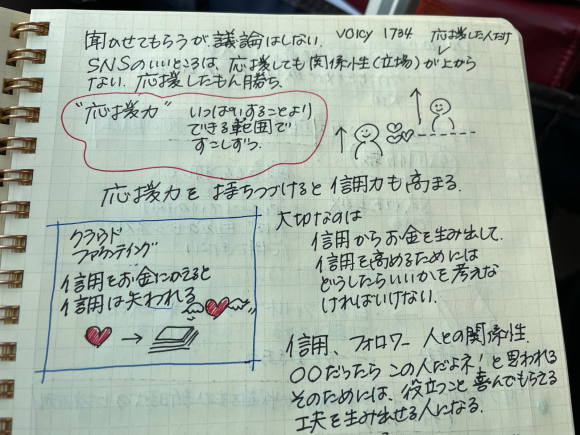 聞かせてもらうが議論はしない. VOICY 1734 応援した人だけ
SNSのいいところは、応援しても関係性(立場)が上から
ない. 応援したもん勝ち.
"応援力"
いっぱいすることより
できる範囲で
すこしずつ.
応援力を持ちつづけると信用力も高まる.
クラウド
ファウンティング
信用をお金にかえると
信用は失われる
大切なのは
信用からお金を生み出して.
信用を高めるためには
どうしたらいいかを考えな
ければいけない.
信用、フォロワー 人との関係性.
〇〇だったらこの人だよネ!と思われる
そのためには、役立つこと 喜んでもらえる
工夫を生み出せる人になる.